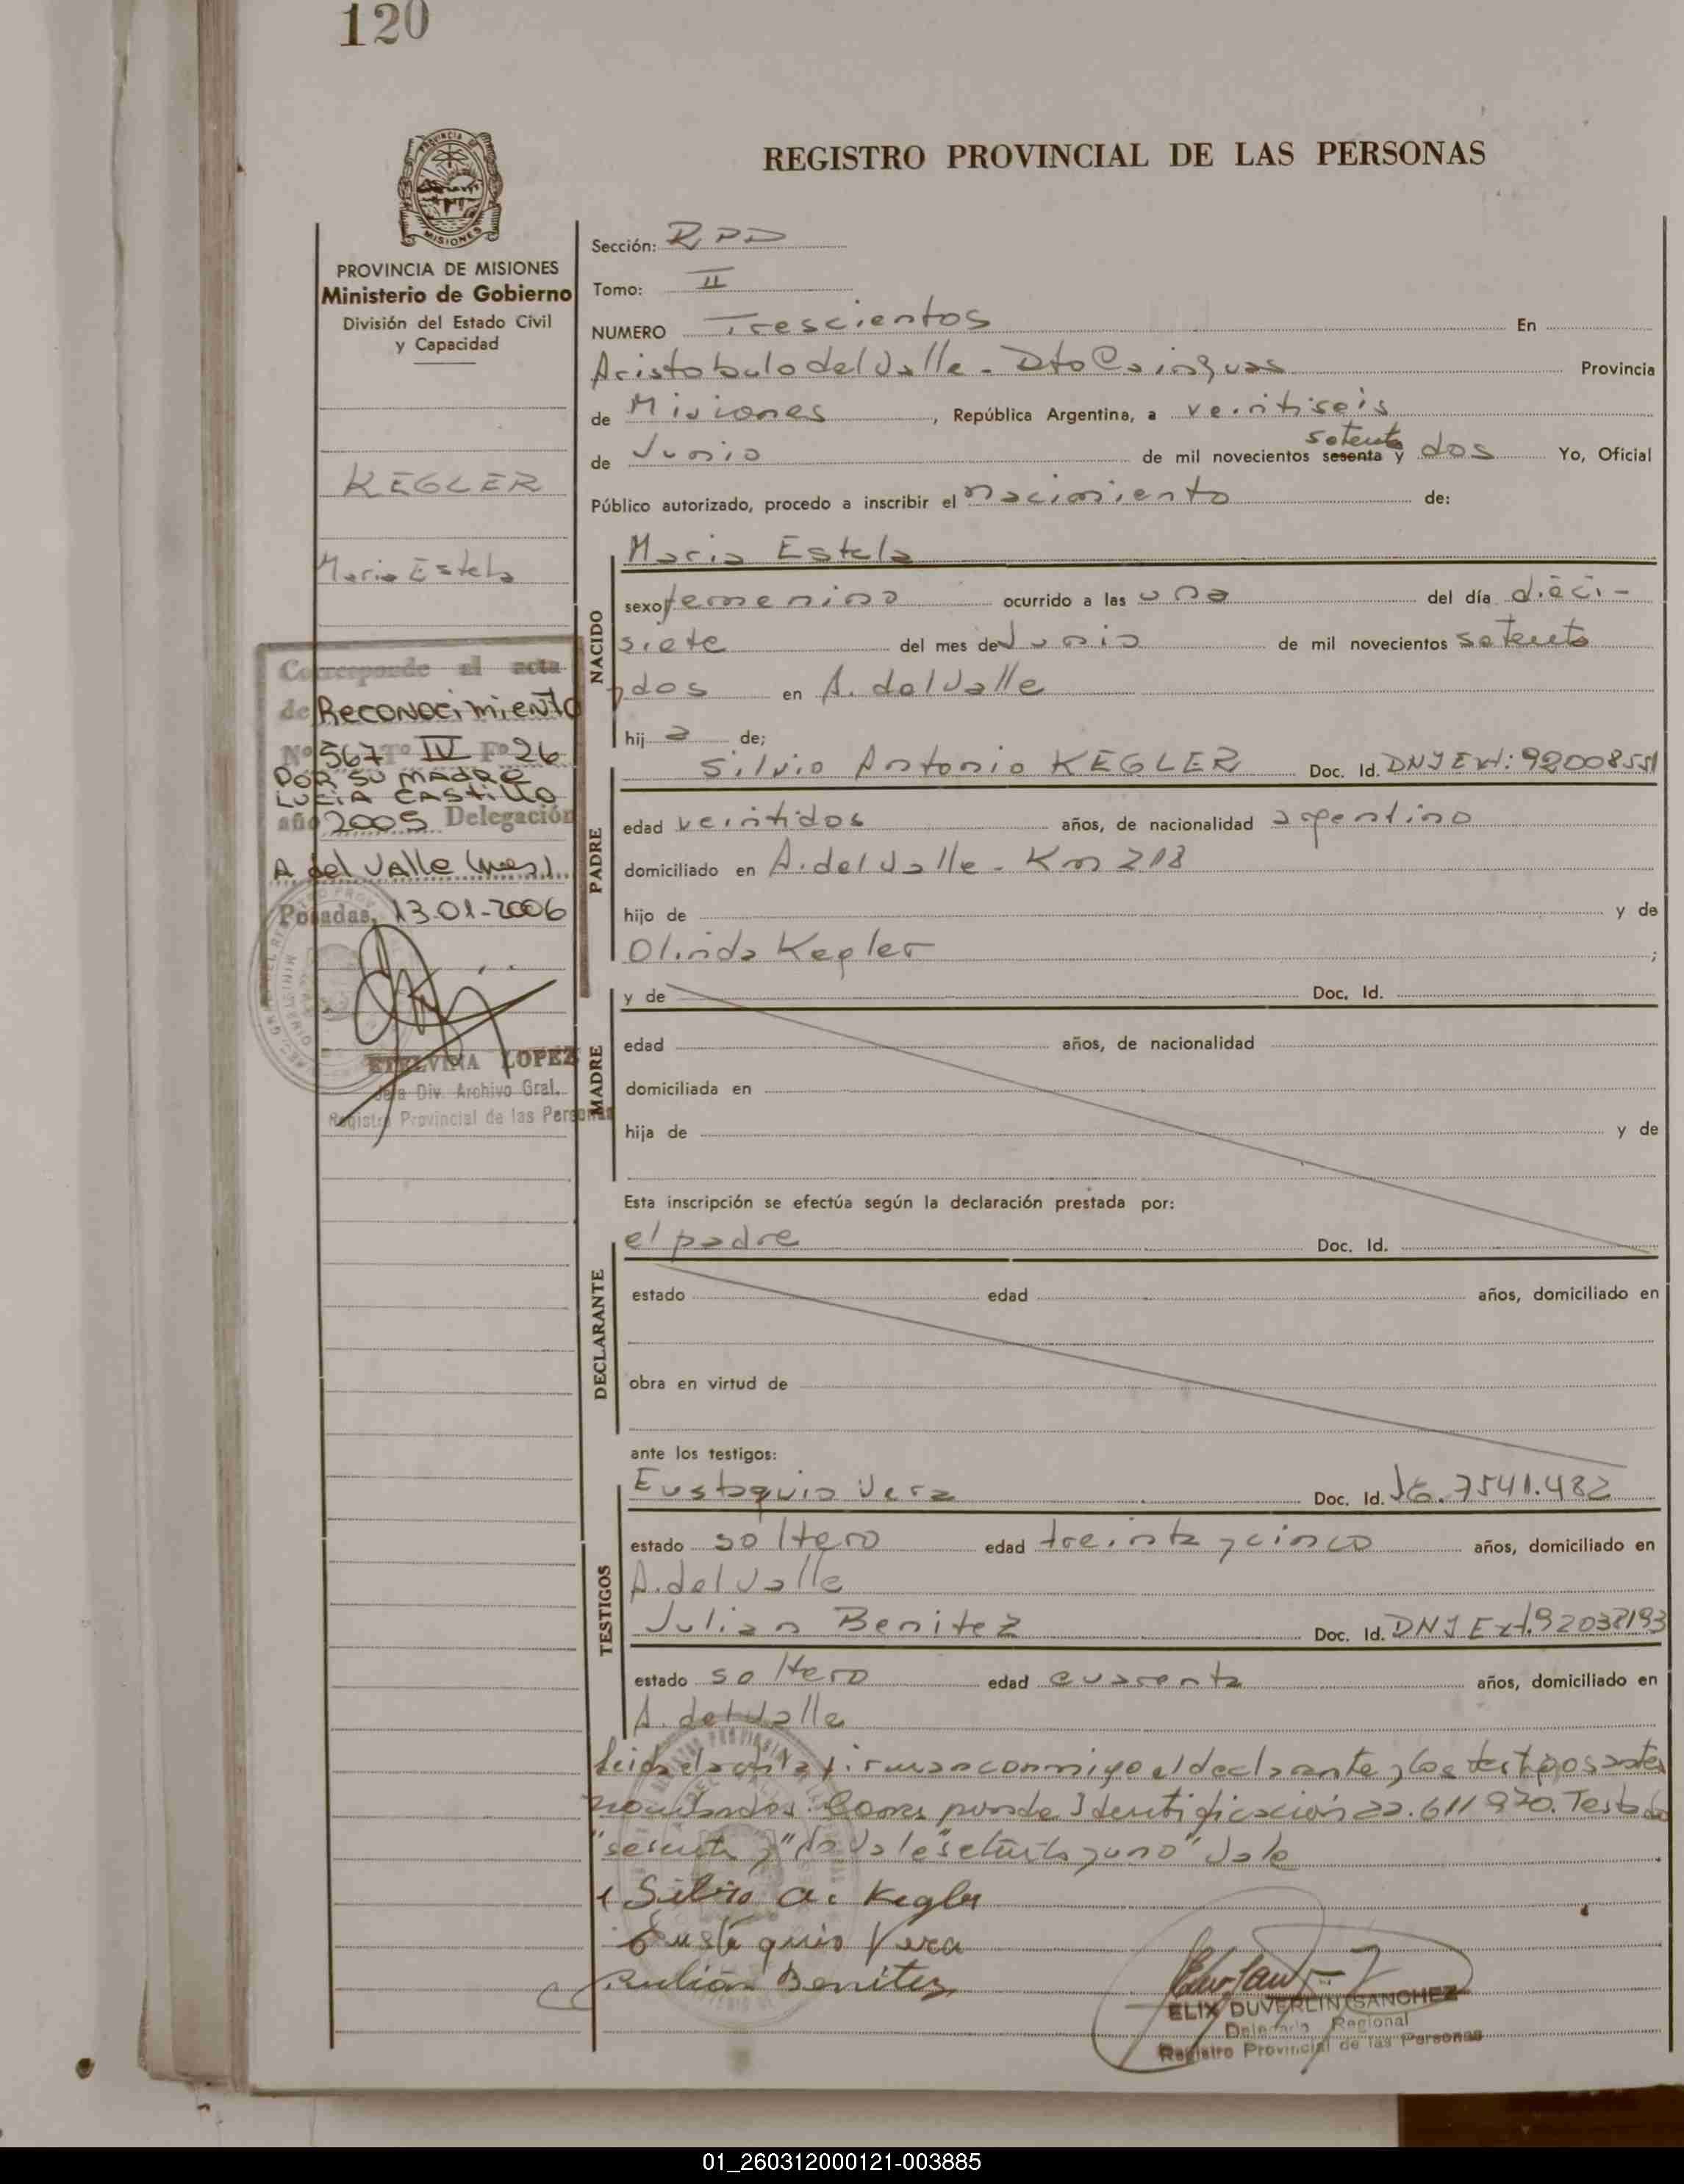 120
PROVINCIA DE
MISIONES
PROVINCIA DE MISIONES
Ministerio de Gobierno
División del Estado Civil
y Capacidad
KEGLER
Maria Estela
Corresponde al acta
de Reconocimiento
Nº 567 Tº IV Fº 26
POR SU MADRE
LUCIA CASTILLO
año 2005 Delegación
A del Valle (Mnes).
Posadas, 13-01-2006
ETELVINA LOPEZ
Jefa Div. Archivo Gral.
Registro Provincial de las Personas
REGISTRO PROVINCIAL DE LAS PERSONAS
Sección: RPD
Tomo: II
NUMERO Trescientos En
Aristobulo del Valle - Dto Cainguas Provincia
de Misiones, República Argentina, a veintiseis
de Junio de mil novecientos sesenta y setenta dos Yo, Oficial
Público autorizado, procedo a inscribir el nacimiento de:
NACIDO
Maria Estela
sexo femenino ocurrido a las una del día dieci-
siete del mes de Junio de mil novecientos setenta
y dos en A. del Valle
hij a de;
PADRE
Silvio Antonio KEGLER Doc. Id. DNI Ext: 92008551
edad veintidos años, de nacionalidad argentino
domiciliado en A. del Valle - Km 218
hijo de y de
Olinda Kegler ;
MADRE
y de Doc. Id.
edad años, de nacionalidad
domiciliada en
hija de y de
Esta inscripción se efectúa según la declaración prestada por:
DECLARANTE
el padre Doc. Id.
estado edad años, domiciliado en
obra en virtud de
ante los testigos:
TESTIGOS
Eustaquio Vera Doc. Id. 7541.482
estado soltero edad treinta y cinco años, domiciliado en
A. del Valle
Julian Benitez Doc. Id. DNI Ext. 92038193
estado soltero edad cuarenta años, domiciliado en
A. del Valle
Leida el acta firman conmigo el declarante y los testigos antes
nombrados. Corresponde Identificación 22.611970. Testado
"sesenta y" no vale "setenta y uno" Vale
Silvio A. Kegler
Eustaquio Vera
Julián Benitez
ELIX DUVERLIN SANCHEZ
Delegado Regional
Registro Provincial de las Personas
01_260312000121-003885